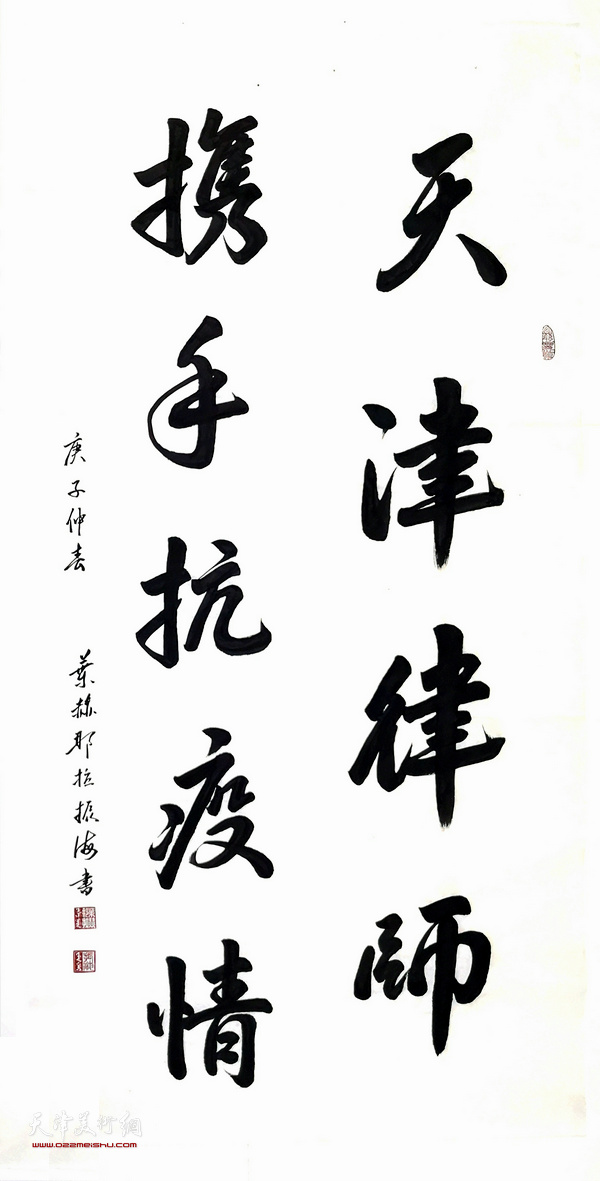 天津律師
携手抗疫情
庚子仲春 葉赫那拉振海書
天津美術網
www.022meishu.com